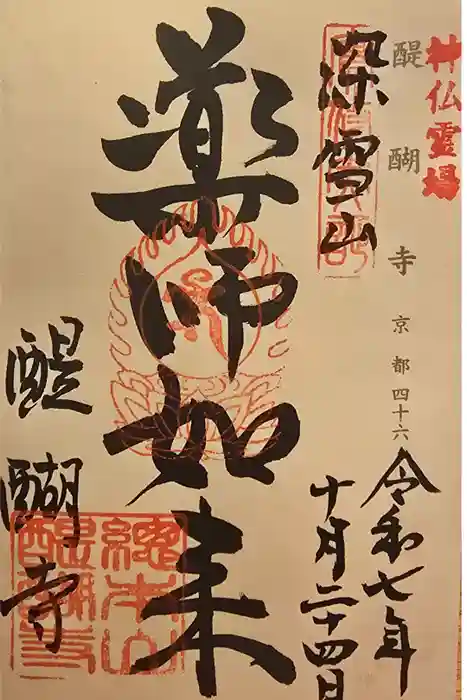 神仏霊場
醍醐寺 京都四十六
令和七年
十月二十四日
深雪山
薬師如来
醍醐寺
総本山
醍醐寺